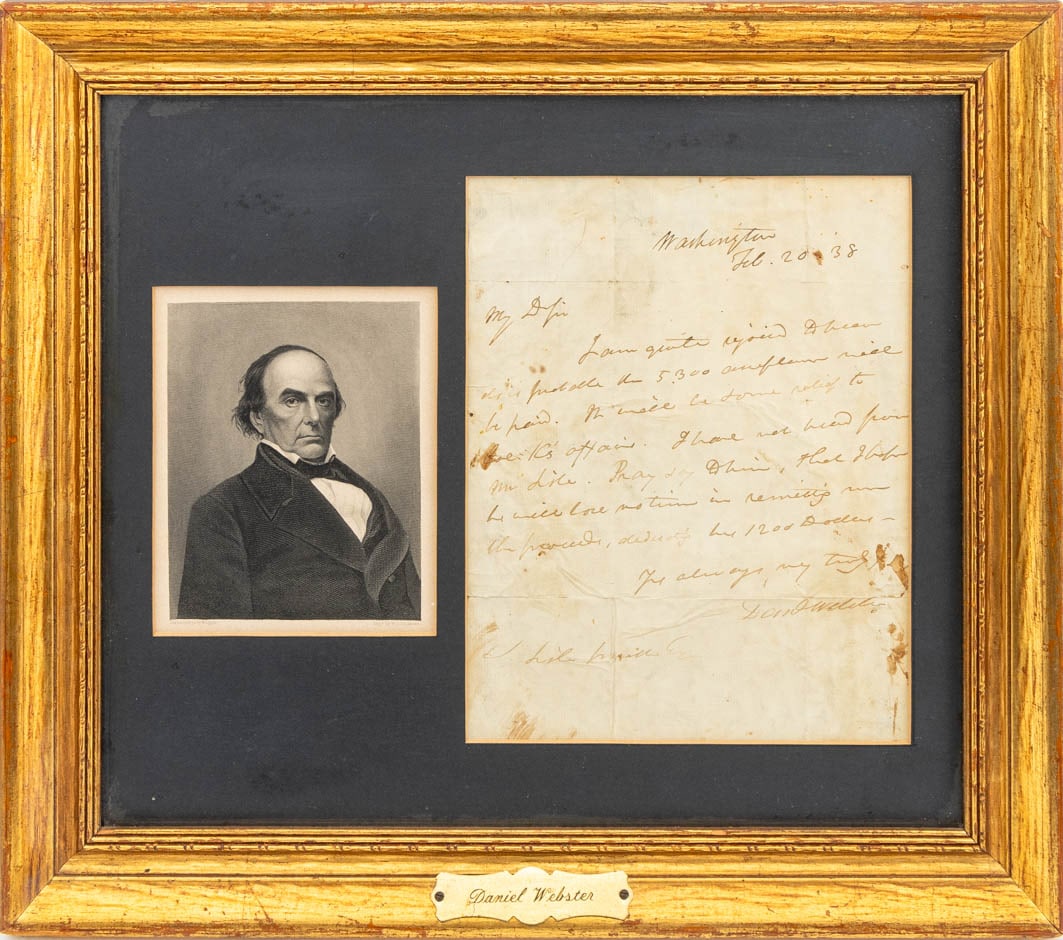 Washington
Feb. 20 '38
My D Sir
I am quite rejoiced to hear
it is probable the 5.300 will
be paid. It will be some relief to
K's affairs. I have not heard from
Mr Lisle. Pray say to him, that I hope
he will lose no time in remitting me
the proceeds, deductg his 1200 Dollars —
Yrs always, very truly
Danl Webster
Daniel Webster